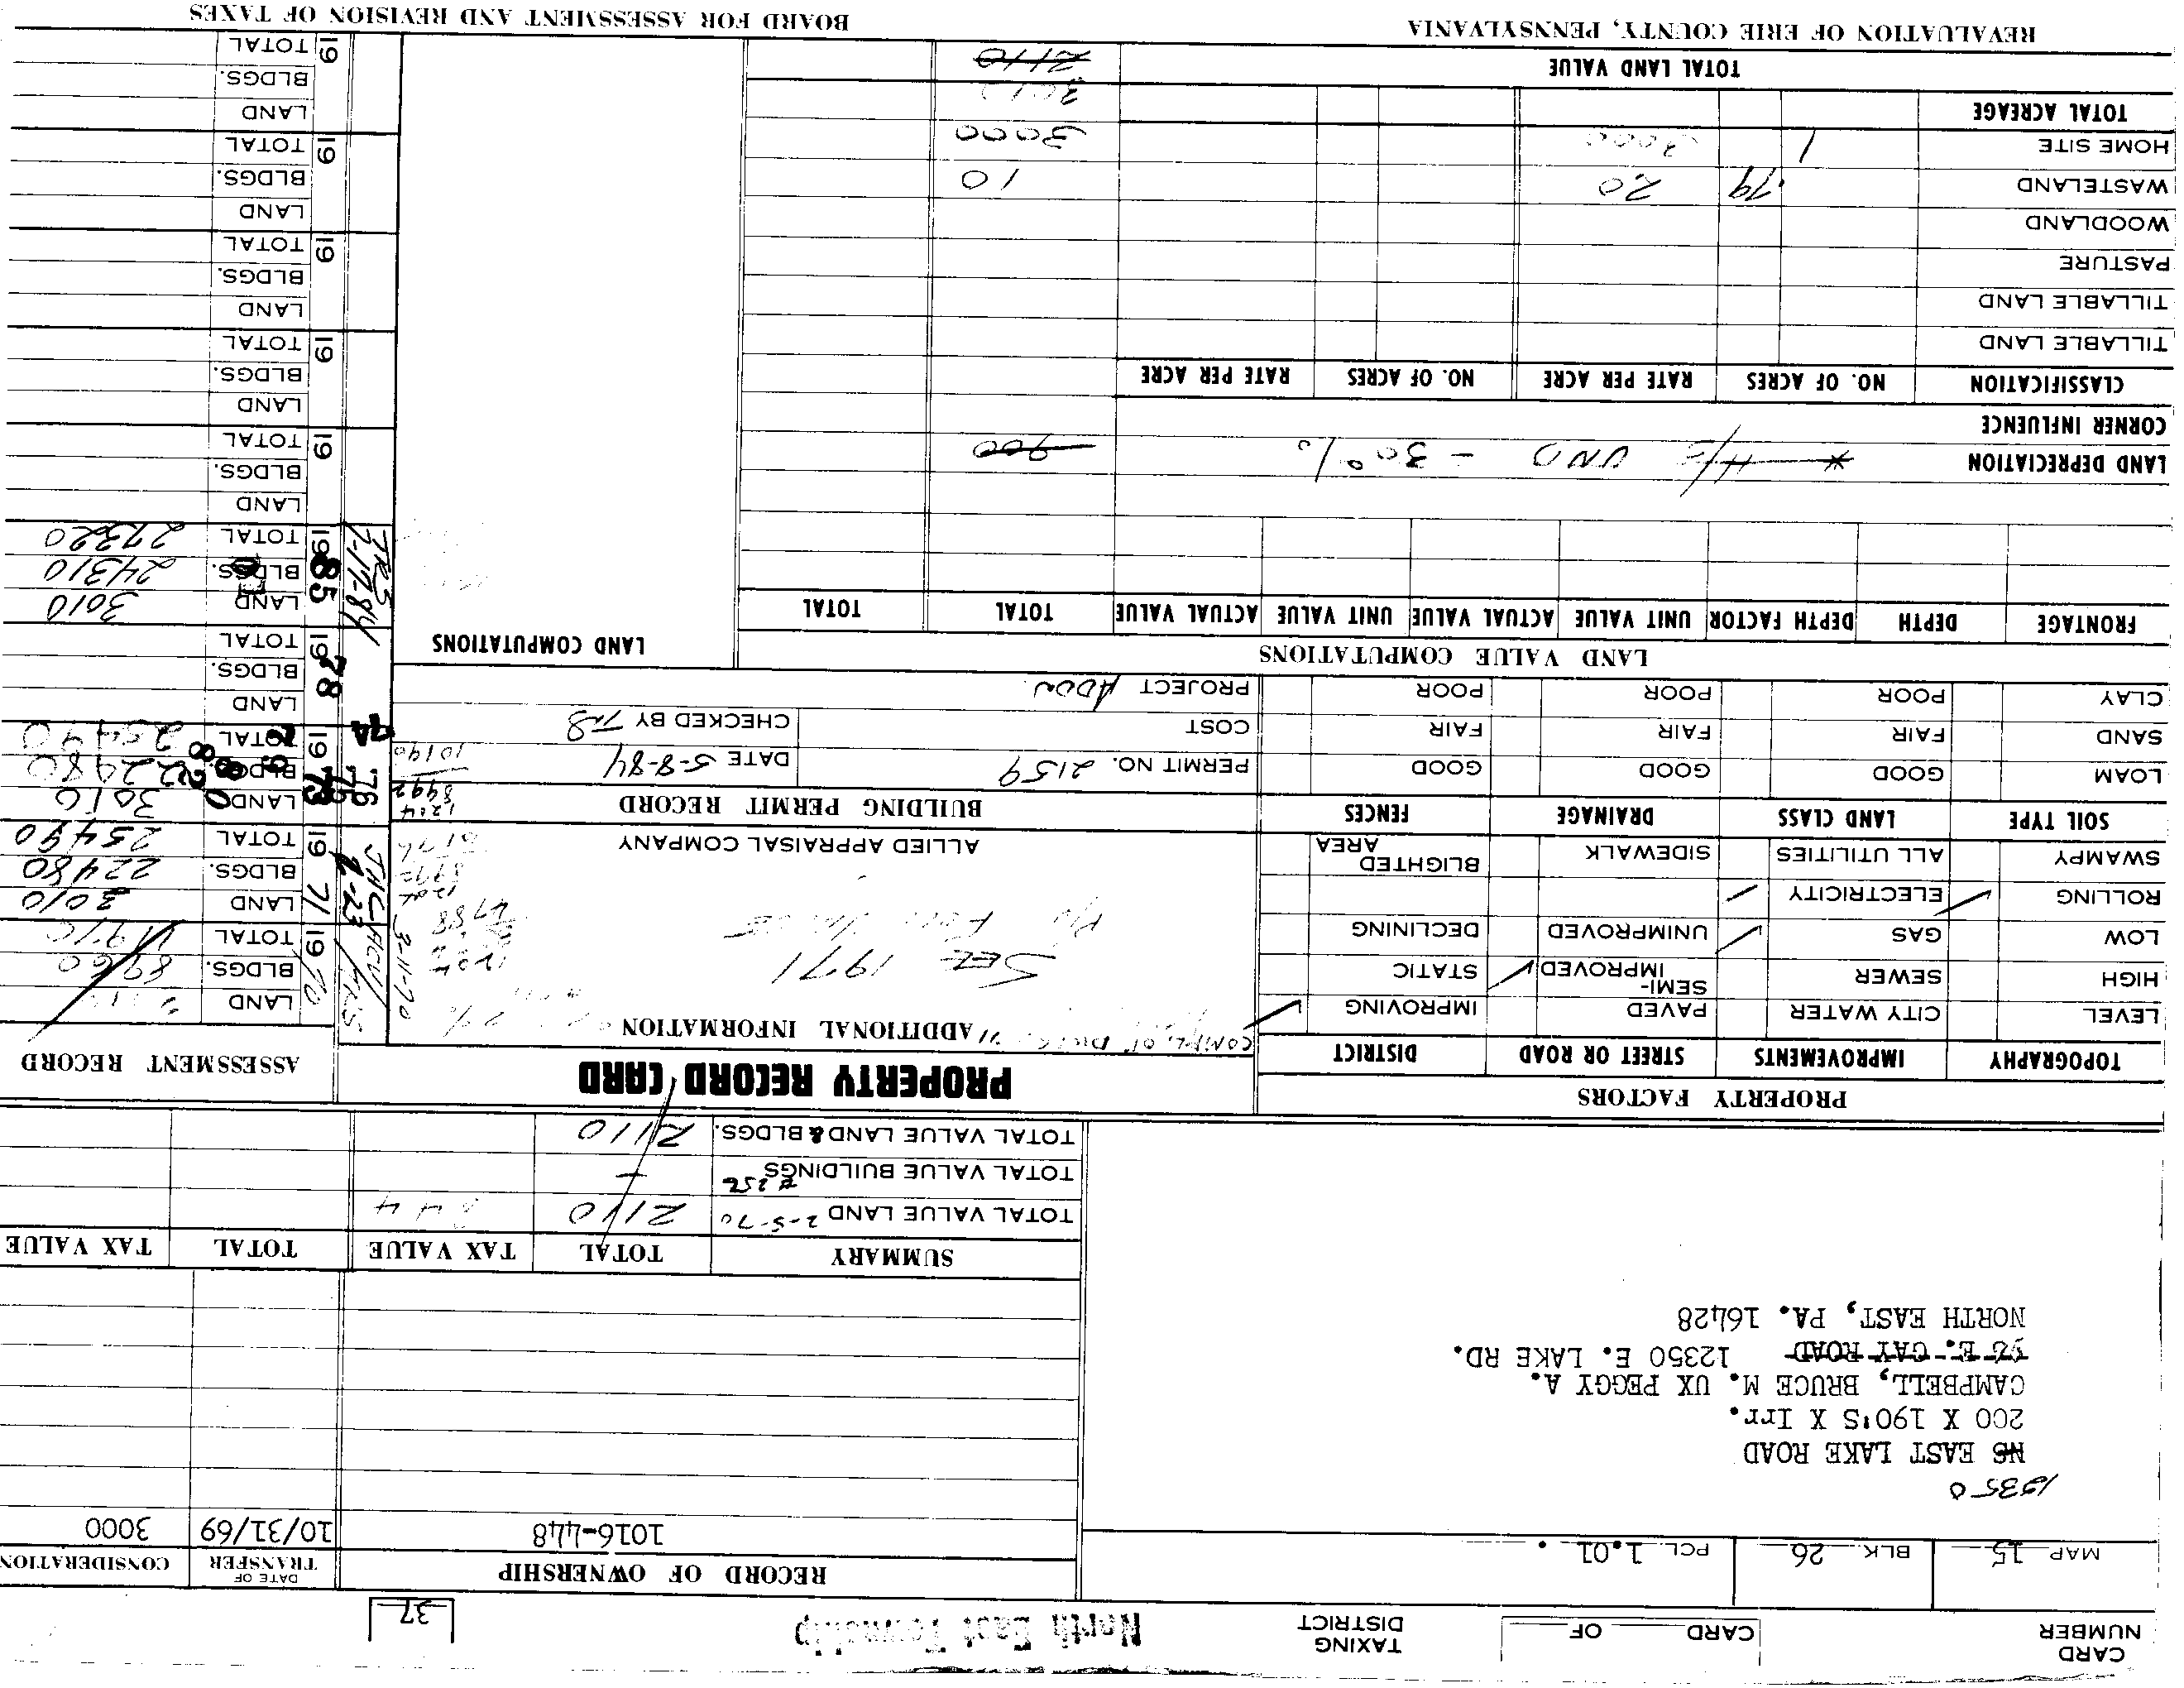 CARD NUMBER
CARD OF
TAXING DISTRICT
North East Township
37
MAP 15 BLK. 26 PCL. 1.01
RECORD OF OWNERSHIP
DATE OF TRANSFER
CONSIDERATION
1016-448 10/31/69 3000
12350
NS EAST LAKE ROAD
200 X 190'S X Irr.
CAMPBELL, BRUCE M. UX PEGGY A.
92 E. GAY ROAD 12350 E. LAKE RD.
NORTH EAST, PA. 16428
SUMMARY TOTAL TAX VALUE TOTAL TAX VALUE
TOTAL VALUE LAND 2-5-70 2110 844
TOTAL VALUE BUILDINGS –
TOTAL VALUE LAND & BLDGS. 2110
PROPERTY FACTORS
TOPOGRAPHY IMPROVEMENTS STREET OR ROAD DISTRICT
LEVEL CITY WATER PAVED IMPROVING ✓
HIGH SEWER SEMI-IMPROVED ✓ STATIC
LOW GAS ✓ UNIMPROVED DECLINING
ROLLING ✓ ELECTRICITY ✓
SWAMPY ALL UTILITIES SIDEWALK BLIGHTED AREA
SOIL TYPE LAND CLASS DRAINAGE FENCES
LOAM GOOD GOOD GOOD
SAND FAIR FAIR FAIR
CLAY POOR POOR POOR
PROPERTY RECORD CARD
ADDITIONAL INFORMATION
SEE 1971
ALLIED APPRAISAL COMPANY
BUILDING PERMIT RECORD
PERMIT NO. 2159 DATE 5-8-84
COST CHECKED BY
PROJECT ADDN.
ASSESSMENT RECORD
1970 LAND
BLDGS. 8960
TOTAL
3-11-70
1971 LAND 3010
BLDGS. 22480
TOTAL 25490
1973 LAND 3010
BLDGS. 22480
TOTAL 25490
76
1978 LAND
BLDGS.
TOTAL
1985 LAND 3010
BLDGS. 24310
TOTAL 27320
7-17-84
19 LAND
BLDGS.
TOTAL
19 LAND
BLDGS.
TOTAL
19 LAND
BLDGS.
TOTAL
19 LAND
BLDGS.
TOTAL
19 LAND
BLDGS.
TOTAL
LAND VALUE COMPUTATIONS
LAND COMPUTATIONS
FRONTAGE DEPTH DEPTH FACTOR UNIT VALUE ACTUAL VALUE UNIT VALUE ACTUAL VALUE TOTAL TOTAL
LAND DEPRECIATION * H/S UND - 30% 900
CORNER INFLUENCE
CLASSIFICATION NO. OF ACRES RATE PER ACRE NO. OF ACRES RATE PER ACRE
TILLABLE LAND
TILLABLE LAND
PASTURE
WOODLAND
WASTELAND .79 20 10
HOME SITE 1 3000 3000
TOTAL ACREAGE 3010
TOTAL LAND VALUE 2110
REVALUATION OF ERIE COUNTY, PENNSYLVANIA
BOARD FOR ASSESSMENT AND REVISION OF TAXES